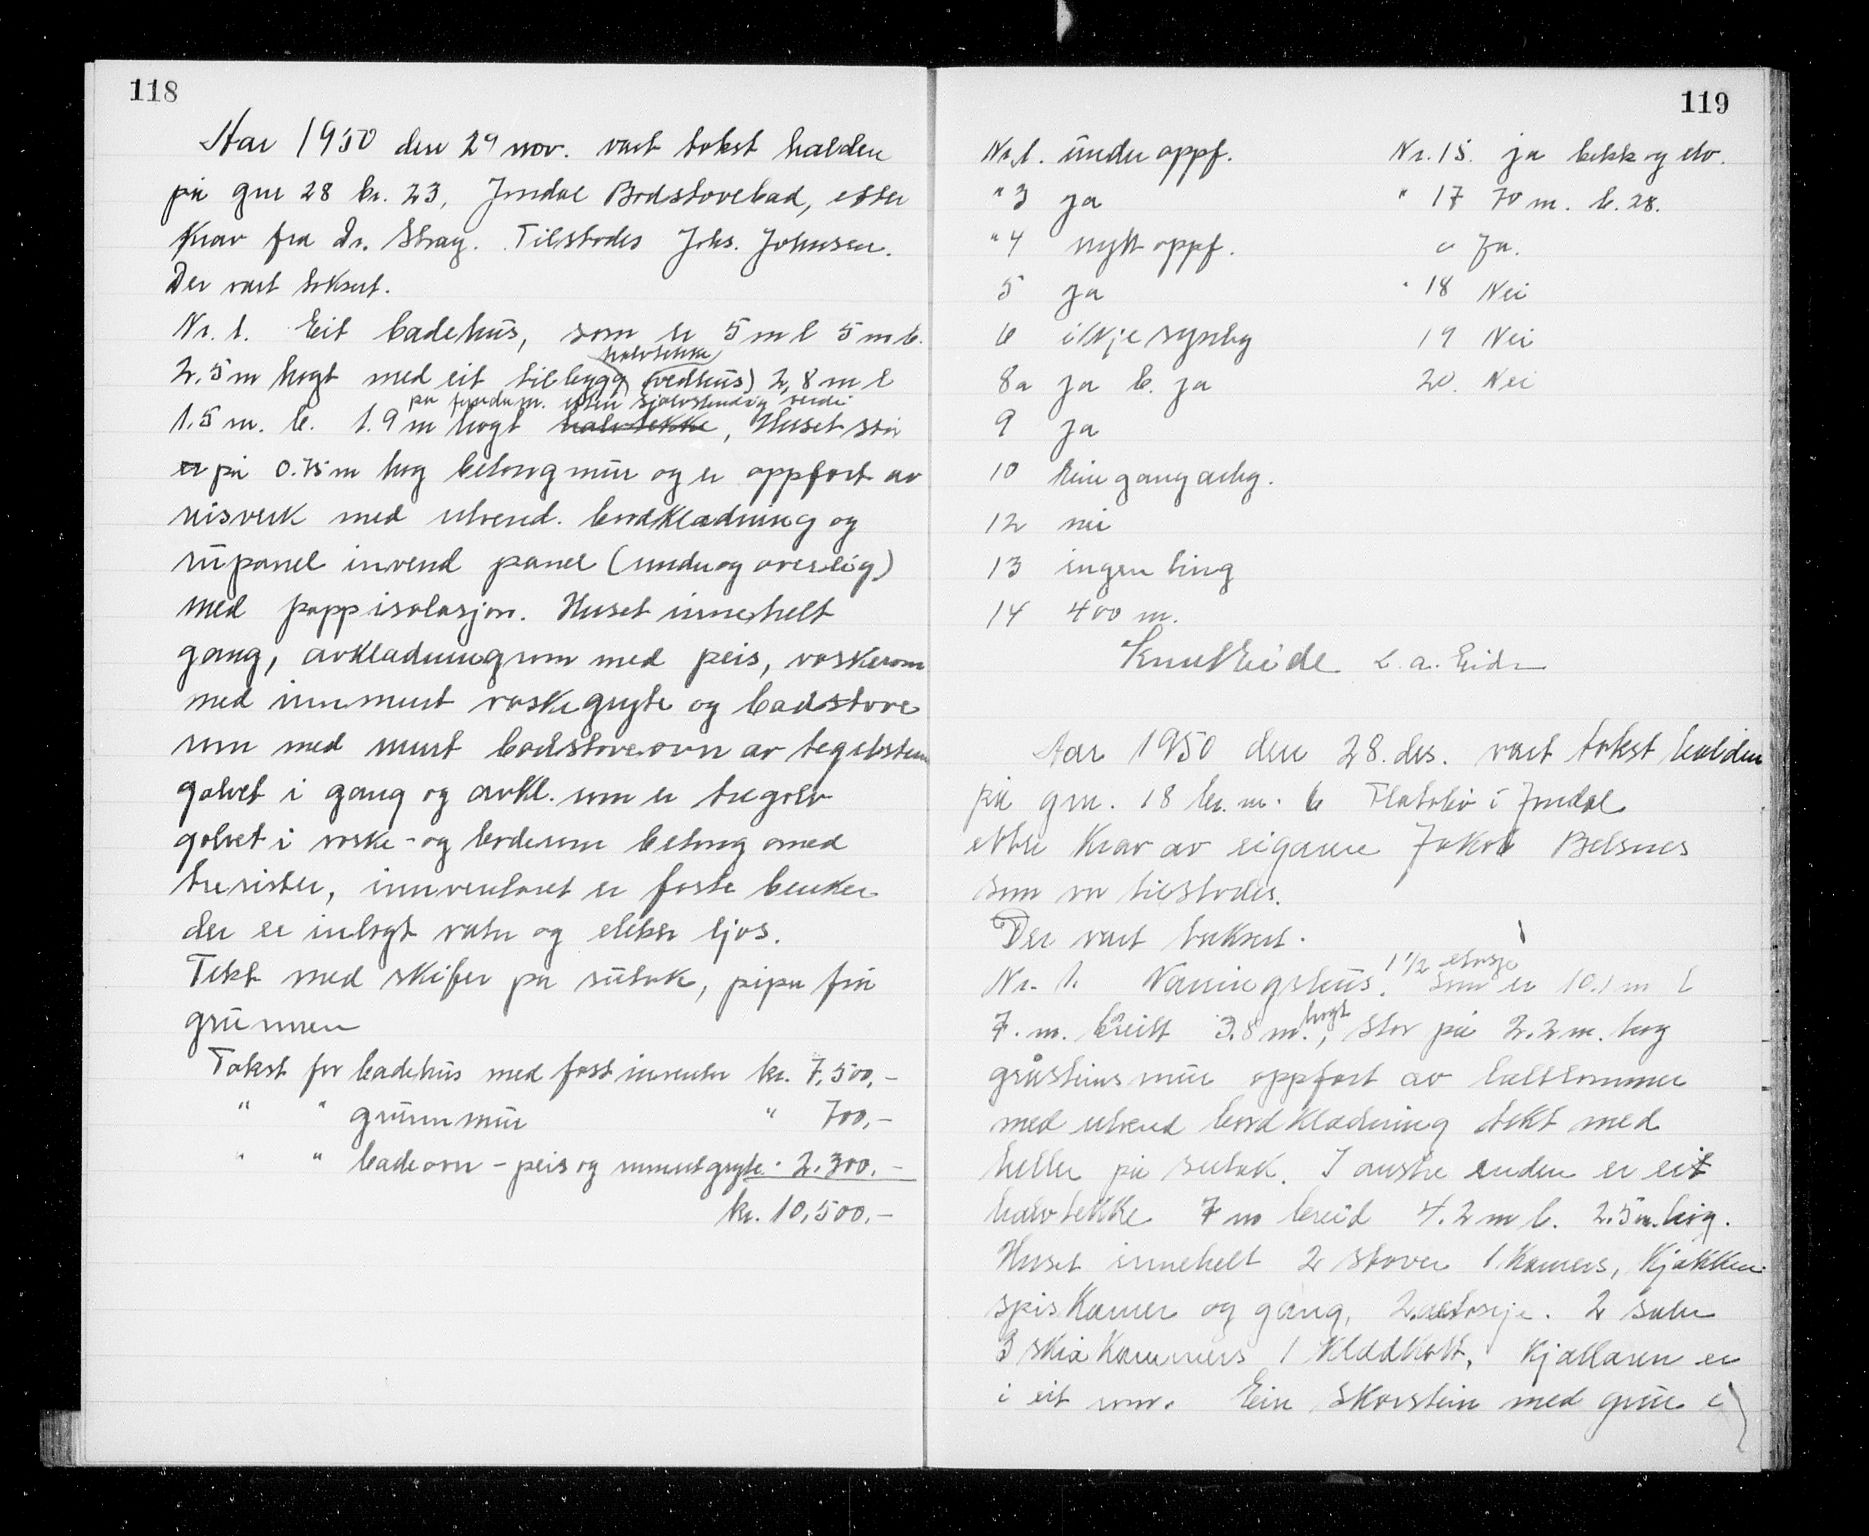 118
Aar 1950 den 29 nov. vart takst halden
på gnr 28 br. 23, Jondal Badstovebad, etter
krav fra Dr. Stray. Tilstades Johs. Johnsen.
Der vart taksert.
Nr. 1. Eit badehus, som er 5 m l 5 m b.
halvtekke
2.5 m høgt med eit tilbygg (vedhus) 2,8 m l
på fundam. uten sjølvstendig verdi
1.5 m. b. 1.9 m høgt halvtekke, Huset står
er på 0.75 m høg betongmur og er oppført av
reisverk med utvend. bordkledning og
rupanel invend panel (under og overlig)
med pappisolasjon. Huset inneheld
gang, avkledningsrom med peis, vaskerom
med innmurt vaskegryte og badstove
rom med murt badstoveovn av teglstein
golvet i gang og avkl. rom er tregolv
golvet i vaske- og baderom betong med
trerister, innventaret er faste benker
der er inlagt vatn og elektr ljos.
Tekt med skifer på sutak, pipa frå
grunnen
Takst for badehus med fast inventar kr. 7,500,-
" " grunnmur " 700,-
" " badeovn - peis og innmurt gryte " 2.300.-
kr. 10,500,-
119
Nr. 1. under oppf.
" 3 ja
" 4 nytt oppf.
5 ja
6 ikkje synleg
8a ja b. ja
9 ja
10 Ein gang årleg.
12 nei
13 ingen ting
14 400 m.
Nr. 15. ja bekk og elv.
" 17 70 m. b. 28.
c Ja.
" 18 Nei
19 Nei
20. Nei
Knut Eide L. A. Eide
Aar 1950 den 28. des. vart takst halden
på gnr. 18 br. nr. 6 Flatabø i Jondal
etter krav av eigaren Jakob Belsnes
som var tilstades.
Der vart taksert.
1 1/2 etasje
Nr. 1. Våningshus. Som er 10.1 m l
7. m. breitt 3.8 m. høgt, Står på 2.2 m. høg
gråsteinsmur oppført av halvtommer
med utvend bordkledning tekt med
heller på sutak. I austre enden er eit
halvtekke 7 m breid 4.2 m l. 2.5 m. høg.
Huset inneheld 2 stover 1 kamers, kjøkken
spiskamer og gang, 2. etasje. 2 saler
3 skråkammers 1 kledkott. Kjellaren er
i eit rom. Ein skorstein med grue i